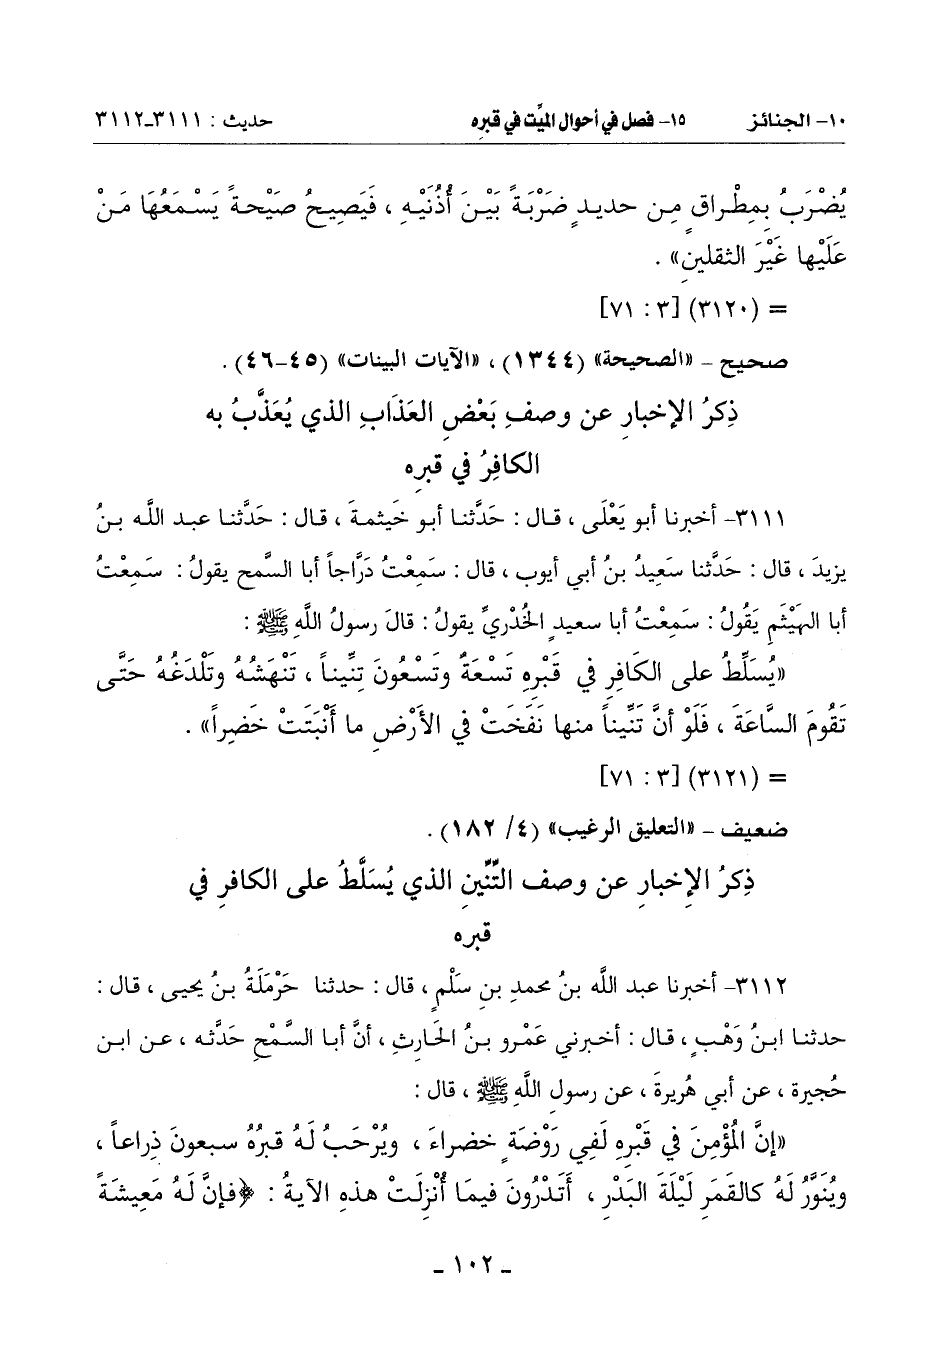 ١٠- الجنائز ١٥- فصل في أحوال الميِّت في قبره حديث : ٣١١١-٣١١٢
يُضْرَبُ بِمِطْراقٍ مِن حديدٍ ضَرْبَةً بَيْنَ أُذُنَيْهِ ، فَيَصِيحُ صَيْحةً يَسْمَعُهَا مَنْ
عَلَيْها غَيْرَ الثقلينِ» .
= (٣١٢٠) [٣ : ٧١]
صحيح – «الصحيحة» (١٣٤٤) ، «الآيات البينات» (٤٥-٤٦) .
ذِكرُ الإخبارِ عن وصفِ بَعْضِ العَذَابِ الذي يُعَذَّبُ به
الكافِرُ في قبرِه
٣١١١- أخبرنا أبو يَعْلَى ، قال : حَدَّثنا أبو خَيثمةَ ، قال : حَدَّثنا عبد اللَّه بنُ
يزيدَ ، قال : حَدَّثنا سَعِيدُ بنُ أبي أيوب ، قال : سَمِعْتُ دَرَّاجاً أبا السَّمح يقولُ : سَمِعْتُ
أبا الهَيْثَمِ يَقُولُ : سَمِعْتُ أبا سعيدٍ الخُدْريِّ يقولُ : قالَ رسولُ اللَّهِ ﷺ :
«يُسَلِّطُ على الكَافِرِ في قَبْرِهِ تَسْعَةٌ وتَسْعُونَ تِنِّيناً ، تَنْهَشُهُ وتَلْدَغُهُ حَتَّى
تَقُومَ السَّاعَةَ ، فَلَوْ أنَّ تَنِّيناً منها نَفَخَتْ في الأَرْضِ ما أَنْبَتَتْ خَضِراً» .
= (٣١٢١) [٣ : ٧١]
ضعيف – «التعليق الرغيب» (٤/ ١٨٢) .
ذِكرُ الإخبارِ عن وصف التِّنِّينِ الذي يُسَلَّطُ على الكافرِ في
قبره
٣١١٢- أخبرنا عبد اللَّه بنُ محمدِ بنِ سَلْمٍ ، قال : حدثنا حَرْمَلَةُ بنُ يحيى ، قال :
حدثنا ابنُ وَهْبٍ ، قال : أخبرني عَمْرو بنُ الحَارِثِ ، أنَّ أبا السَّمْحِ حَدَّثه ، عن ابن
حُجيرة ، عن أبي هُريرةَ ، عن رسول اللَّهِ ﷺ ، قال :
«إنَّ المُؤْمِنَ في قَبْرِهِ لَفِي رَوْضَةٍ خضراءَ ، ويُرْحَبُ لَهُ قبرُهُ سبعونَ ذِراعاً ،
ويُنَوَّرُ لَهُ كالقَمَرِ لَيْلَةَ البَدْرِ ، أَتَدْرُونَ فيمَا أُنْزِلَتْ هذهِ الآيةُ : ﴿فإنَّ لَهُ مَعِيشَةً
ـ ١٠٢ ـ